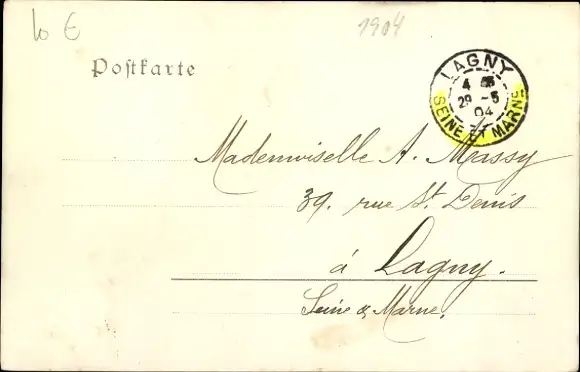 10 €
1904
Postkarte
LAGNY
29 -5
04
SEINE ET MARNE
Mademoiselle A. Massy
39. rue St. Denis
à Lagny.
Seine & Marne.